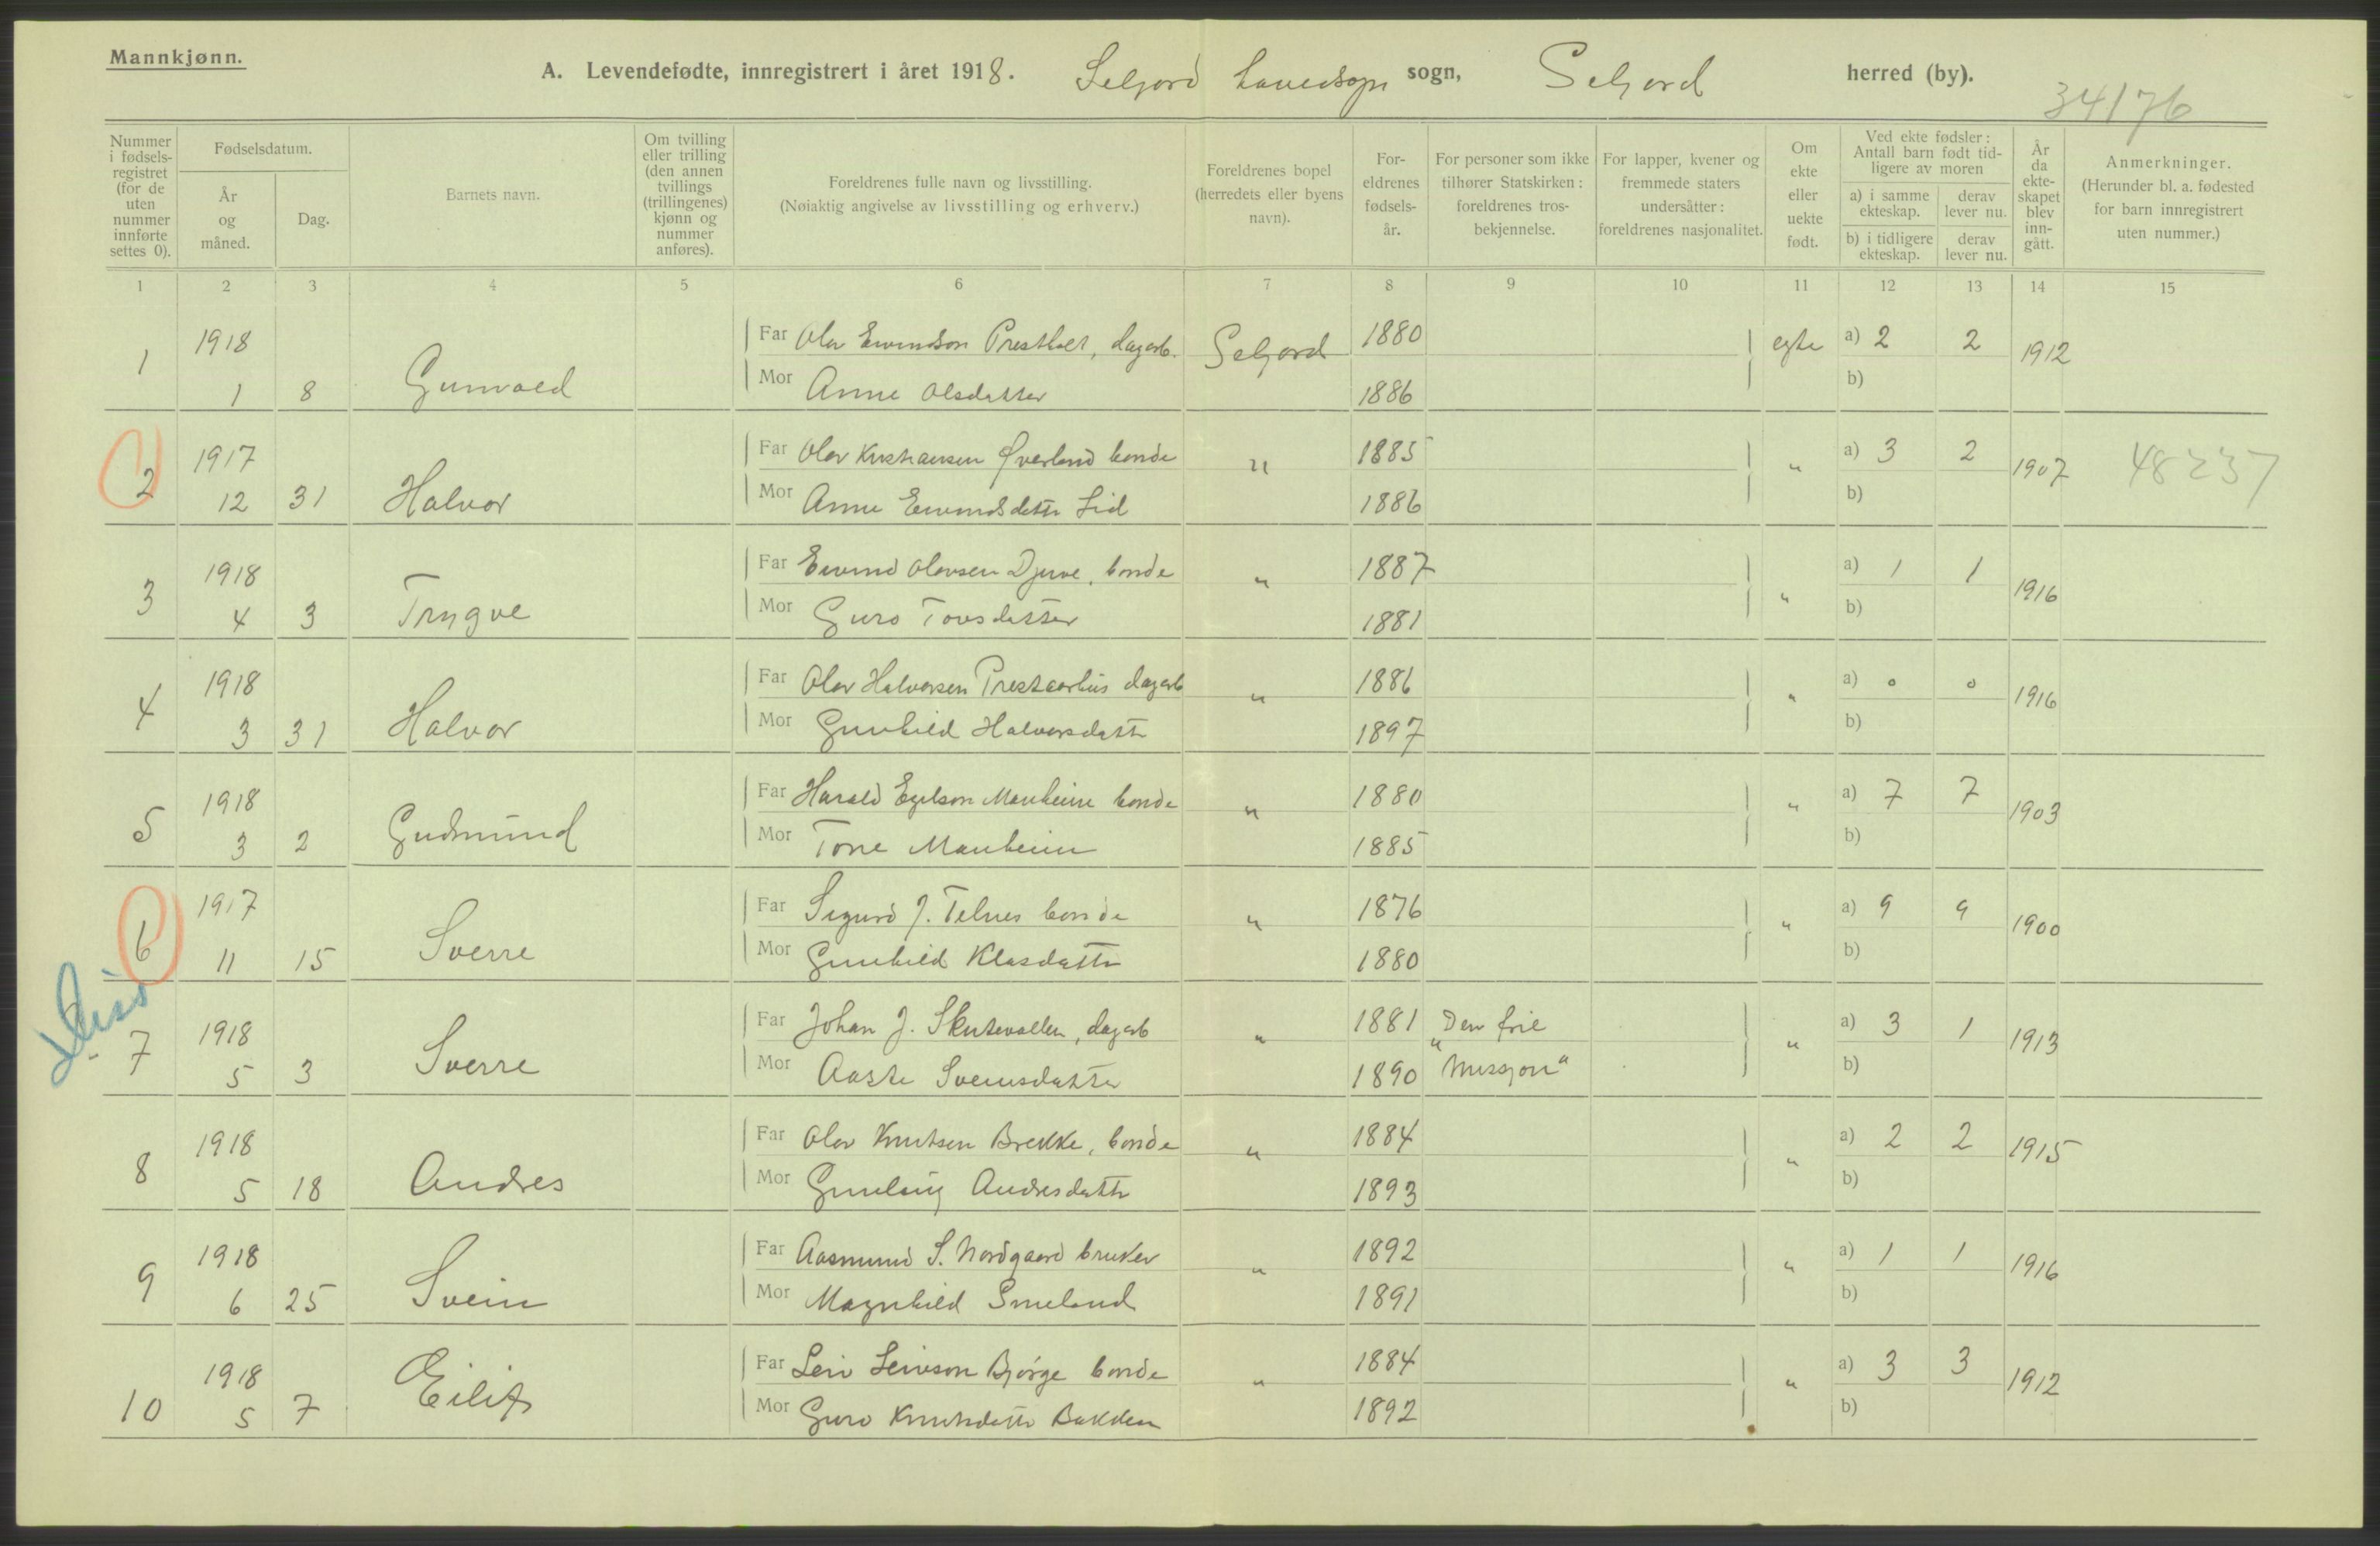 Mannkjønn.
A. Levendefødte, innregistrert i året 1918. Seljord Hovedsogn sogn, Seljord herred (by).
34176
Nummer i fødsels-registret (for de uten nummer innførte settes 0).
Fødselsdatum.
År og måned.
Dag.
Barnets navn.
Om tvilling eller trilling (den annen tvillings (trillingenes) kjønn og nummer anføres).
Foreldrenes fulle navn og livsstilling.
(Nøiaktig angivelse av livsstilling og erhverv.)
Foreldrenes bopel (herredets eller byens navn).
For-eldrenes fødsels-år.
For personer som ikke tilhører Statskirken: foreldrenes tros-bekjennelse.
For lapper, kvener og fremmede staters undersåtter: foreldrenes nasjonalitet.
Om ekte eller uekte født.
Ved ekte fødsler: Antall barn født tid-ligere av moren
a) i samme ekteskap.
derav lever nu.
b) i tidligere ekteskap.
derav lever nu.
År da ekte-skapet blev inn-gått.
Anmerkninger.
(Herunder bl. a. fødested for barn innregistrert uten nummer.)
1 2 3 4 5 6 7 8 9 10 11 12 13 14 15
1 1918 Far Olav Eivindson Prestholt, dagarb. Seljord 1880 egte a) 2 2 1912
1 8 Gunvald Mor Anne Olsdatter 1886 b)
2 1917 Far Olav Kristiansen Øverland bonde " 1885 " a) 3 2 1907 48237
12 31 Halvor Mor Anne Eivindsdattr Lid 1886 b)
3 1918 Far Eivind Olavsen Djuve, bonde " 1887 " a) 1 1 1916
4 3 Trygve Mor Guro Tovsdatter 1881 b)
4 1918 Far Olav Halvorsen Prestaarhus dagarb " 1886 " a) 0 0 1916
3 31 Halvor Mor Gunhild Halvorsdattr 1897 b)
5 1918 Far Harald Egilson Manheim bonde " 1880 " a) 7 7 1903
3 2 Gudmund Mor Tone Manheim 1885 b)
6 1917 Far Sigurd J. Telnes bonde " 1876 " a) 9 9 1900
11 15 Sverre Mor Gunhild Klasdattr 1880 b)
7 1918 Far Johan J. Skutevollen, dagarb " 1881 "Den frie " a) 3 1 1913
5 3 Sverre Mor Aaste Sveinsdatter 1890 Missjon" b)
8 1918 Far Olav Knutsen Brekke, bonde " 1884 " a) 2 2 1915
5 18 Andres Mor Gunlaug Andresdattr 1893 b)
9 1918 Far Aasmund S. Nordgaard bruker " 1892 " a) 1 1 1916
6 25 Svein Mor Magnhild Smeland 1891 b)
10 1918 Far Leiv Leivson Bjørge bonde " 1884 " a) 3 3 1912
5 7 Eilif Mor Guro Knutsdattr Bakken 1892 b)